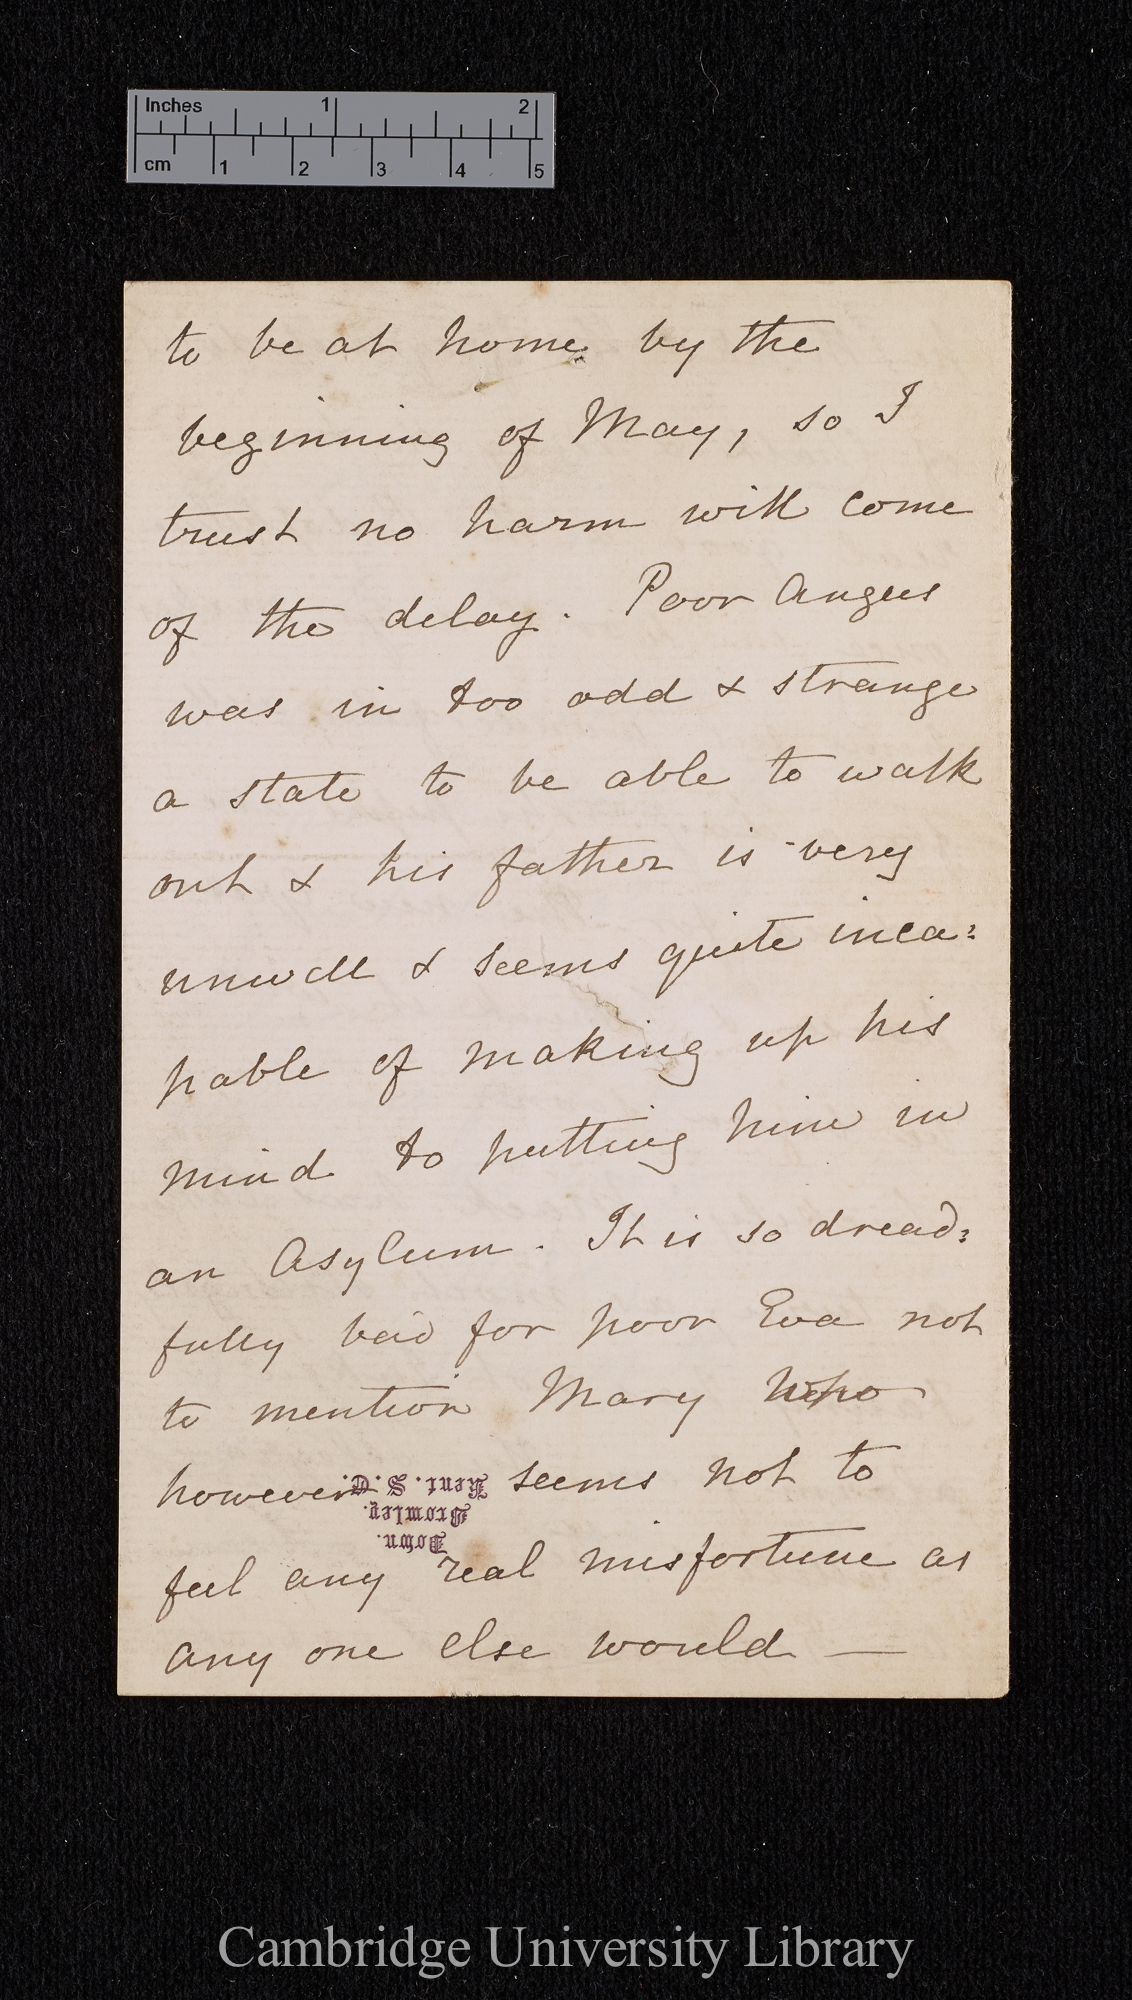 Inches 1 2
cm 1 2 3 4 5
to be at home by the
beginning of May, so I
trust no harm will come
of the delay. Poor Angus
was in too odd & strange
a state to be able to walk
out & his father is very
unwell & seems quite inca=
pable of making up his
mind to putting him in
an Asylum. It is so dread=
fully bad for poor Eva not
to mention Mary who
however seems not to
Down.
Bromley.
Kent. S.E.
feel any real misfortune as
any one else would —
Cambridge University Library